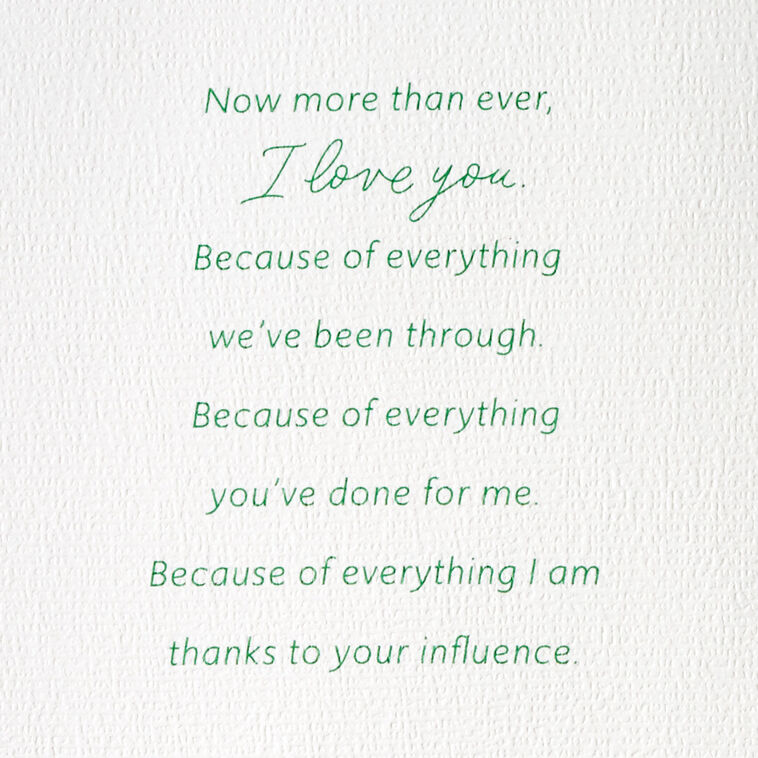 Now more than ever,
I love you.
Because of everything
we've been through.
Because of everything
you've done for me.
Because of everything I am
thanks to your influence.